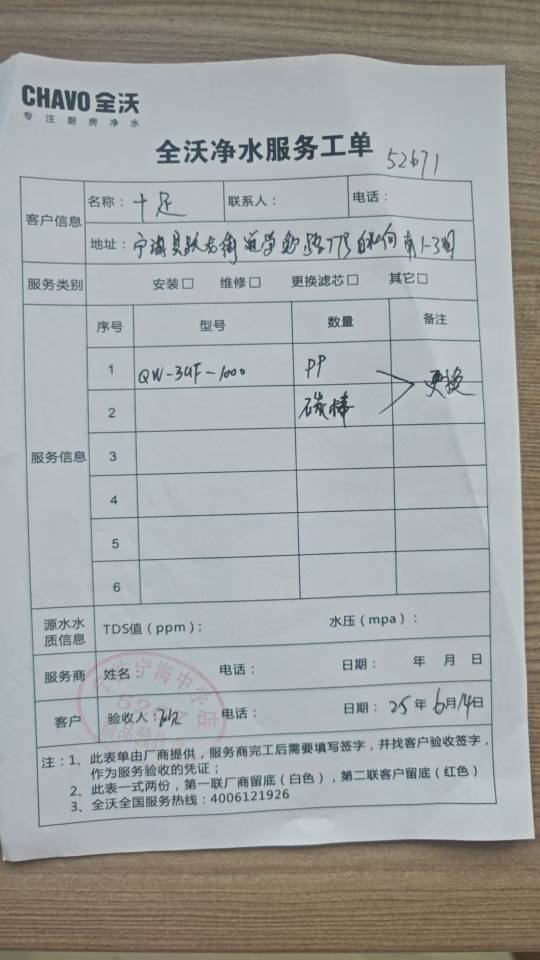 CHAVO 全沃
专注厨房净水
全沃净水服务工单
52671
客户信息
名称：十足 联系人： 电话：
地址：宁海县跃龙街道学勉路77号 南1-3间
服务类别 安装□ 维修□ 更换滤芯□ 其它□
服务信息
序号 型号 数量 备注
1 QW-3UF-1000 PP
更换
2 碳棒
3
4
5
6
源水水质信息 TDS值（ppm）： 水压（mpa）：
服务商 姓名： 电话： 日期： 年 月 日
客户 验收人： 电话： 日期：25年6月14日
宁海中学店
注：1、此表单由厂商提供，服务商完工后需要填写签字，并找客户验收签字，
作为服务验收的凭证；
2、此表一式两份，第一联厂商留底（白色），第二联客户留底（红色）
3、全沃全国服务热线：4006121926